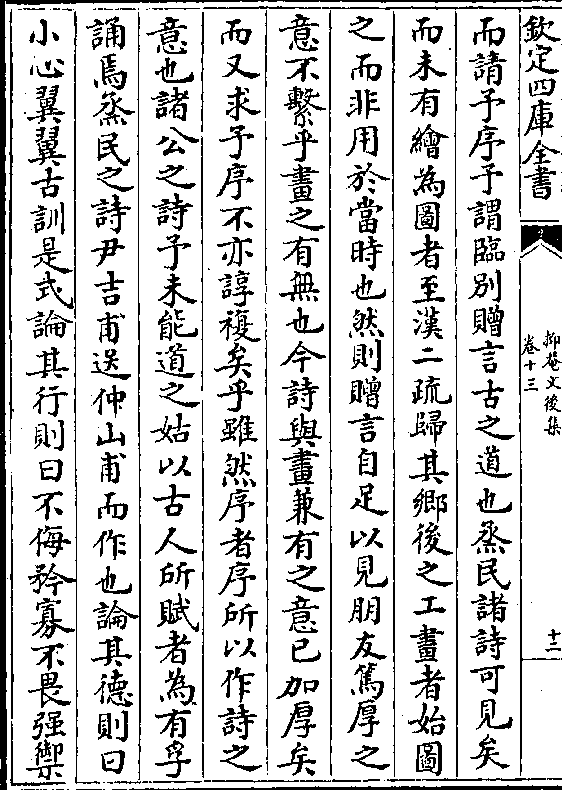 欽定四庫全書
抑菴文後集
卷十三
十三
而請予序予謂臨别贈言古之道也烝民諸詩可見矣
而未有繪為圖者至漢二疏歸其鄉後之工畫者始圖
之而非用於當時也然則贈言自足以見朋友篤厚之
意不繫乎畫之有無也今詩與畫兼有之意已加厚矣
而又求予序不亦諄複矣乎雖然序者序所以作詩之
意也諸公之詩予未能道之姑以古人所賦者為有孚
誦焉烝民之詩尹吉甫送仲山甫而作也論其德則曰
小心翼翼古訓是式論其行則曰不侮矜寡不畏强禦